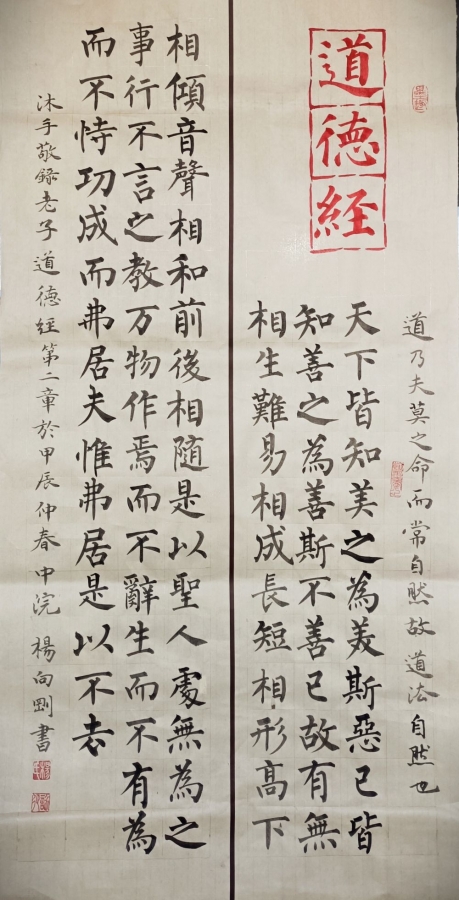 道德経
道乃夫莫之命而常自然故道法自然也
天下皆知美之為美斯惡已皆
知善之為善斯不善已故有無
相生難易相成長短相形高下
相傾音聲相和前後相隨是以聖人處無為之
事行不言之教万物作焉而不辭生而不有為
而不恃功成而弗居夫惟弗居是以不去
沐手敬録老子道德經第二章於甲辰仲春中浣楊向剛書